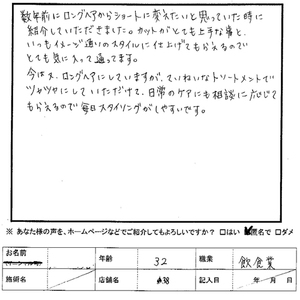 数年前にロングヘアからショートに変えたいと思っていた時に
紹介していただきました。カットがとても上手な事と、
いつもイメージ通りのスタイルに仕上げてもらえるので
とても気に入って通ってます。
今はス、ロングヘアにしていますが、ていねいなトリートメントで
ツヤツヤにしていただけて、日常のケアにも相談に応じて
もらえるので毎日スタイリングがしやすいです。
※ あなた様の声を、ホームページなどでご紹介してもよろしいですか? □はい ☑匿名で □ダメ
お名前 年齢 32 職業 飲食業
施術名 店舗名 記入日 年 月 日